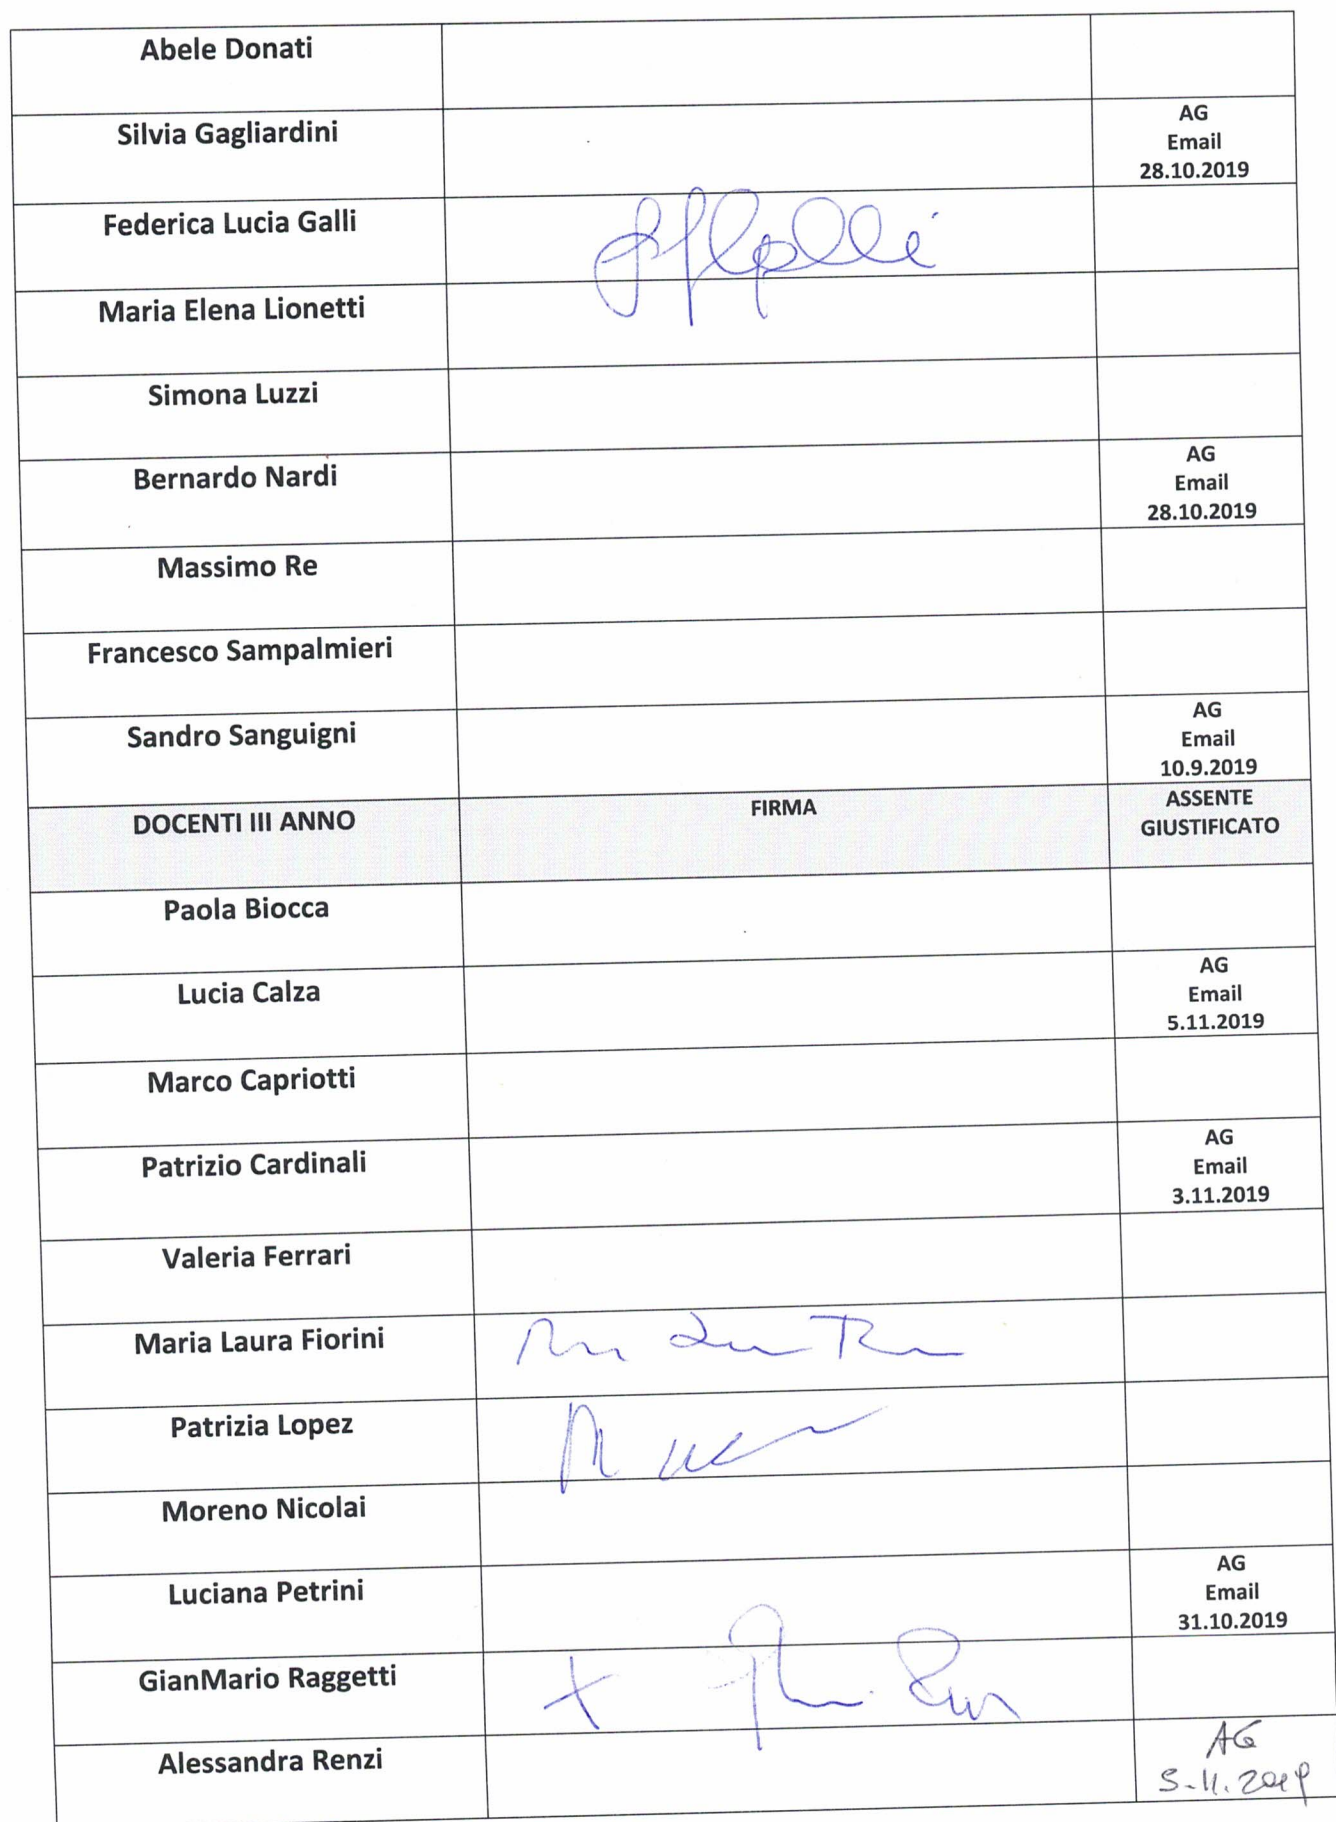 Abele Donati
Silvia Gagliardini
AG
Email
28.10.2019
Federica Lucia Galli
Maria Elena Lionetti
Simona Luzzi
Bernardo Nardi
AG
Email
28.10.2019
Massimo Re
Francesco Sampalmieri
Sandro Sanguigni
AG
Email
10.9.2019
DOCENTI III ANNO
FIRMA
ASSENTE
GIUSTIFICATO
Paola Biocca
Lucia Calza
AG
Email
5.11.2019
Marco Capriotti
Patrizio Cardinali
AG
Email
3.11.2019
Valeria Ferrari
Maria Laura Fiorini
Patrizia Lopez
Moreno Nicolai
Luciana Petrini
AG
Email
31.10.2019
GianMario Raggetti
Alessandra Renzi
AG
5-11.2019